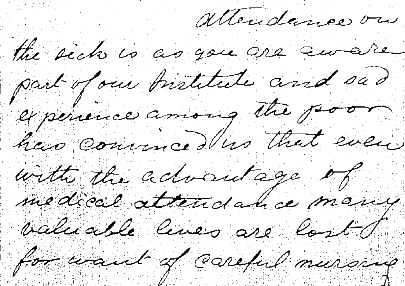 attendance on
the sick is as you are aware
part of our Institute and sad
experience among the poor
has convinced us that even
with the advantage of
medical attendance many
valuable lives are lost
for want of careful nursing